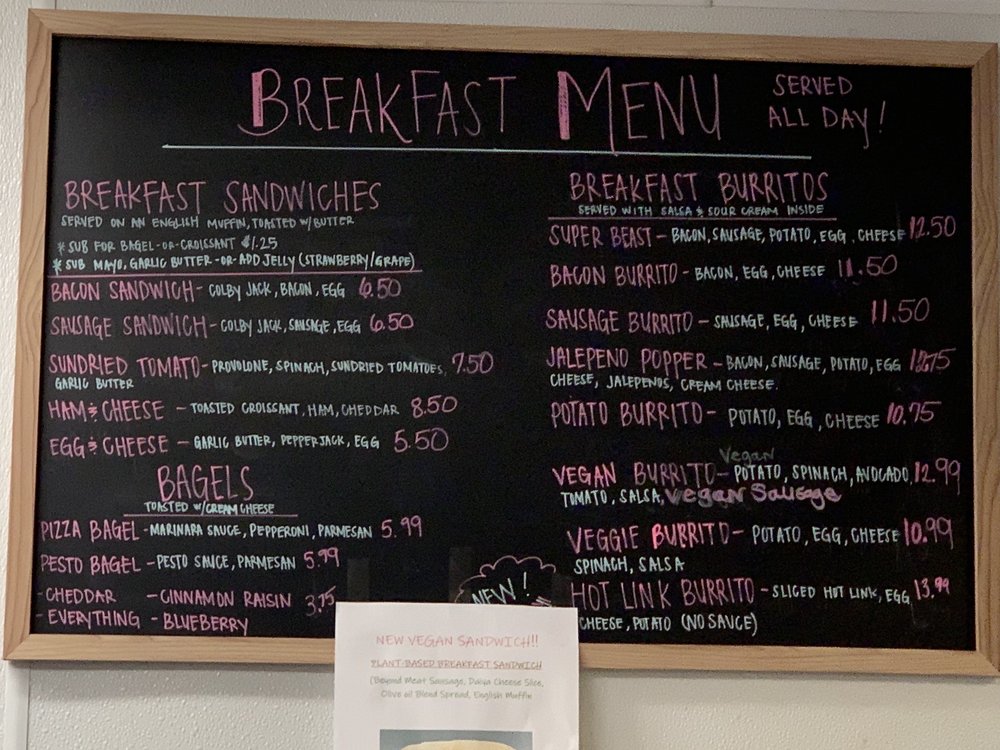 BREAKFAST MENU
SERVED
ALL DAY!
BREAKFAST SANDWICHES
SERVED ON AN ENGLISH MUFFIN, TOASTED W/BUTTER
* SUB FOR BAGEL-OR-CROISSANT $1.25
* SUB MAYO, GARLIC BUTTER -OR- ADD JELLY (STRAWBERRY/GRAPE)
BACON SANDWICH - COLBY JACK, BACON, EGG 6.50
SAUSAGE SANDWICH - COLBY JACK, SAUSAGE, EGG 6.50
SUNDRIED TOMATO - PROVOLONE, SPINACH, SUNDRIED TOMATOES, 7.50
GARLIC BUTTER
HAM & CHEESE - TOASTED CROISSANT, HAM, CHEDDAR 8.50
EGG & CHEESE - GARLIC BUTTER, PEPPERJACK, EGG 5.50
BAGELS
TOASTED W/CREAM CHEESE
PIZZA BAGEL - MARINARA SAUCE, PEPPERONI, PARMESAN 5.99
PESTO BAGEL - PESTO SAUCE, PARMESAN 5.99
- CHEDDAR - CINNAMON RAISIN 3.75
- EVERYTHING - BLUEBERRY
BREAKFAST BURRITOS
SERVED WITH SALSA & SOUR CREAM INSIDE
SUPER BEAST - BACON, SAUSAGE, POTATO, EGG, CHEESE 12.50
BACON BURRITO - BACON, EGG, CHEESE 11.50
SAUSAGE BURRITO - SAUSAGE, EGG, CHEESE 11.50
JALEPENO POPPER - BACON, SAUSAGE, POTATO, EGG 12.75
CHEESE, JALEPENOS, CREAM CHEESE.
POTATO BURRITO - POTATO, EGG, CHEESE 10.75
Vegan
VEGAN BURRITO - POTATO, SPINACH, AVOCADO, 12.99
TOMATO, SALSA, Vegan Sausage
VEGGIE BURRITO - POTATO, EGG, CHEESE 10.99
SPINACH, SALSA
HOT LINK BURRITO - SLICED HOT LINK, EGG, 13.99
CHEESE, POTATO (NO SAUCE)
NEW!
NEW VEGAN SANDWICH!!
PLANT-BASED BREAKFAST SANDWICH
(Beyond Meat Sausage, Daiya Cheese Slice,
Olive oil Blend Spread, English Muffin